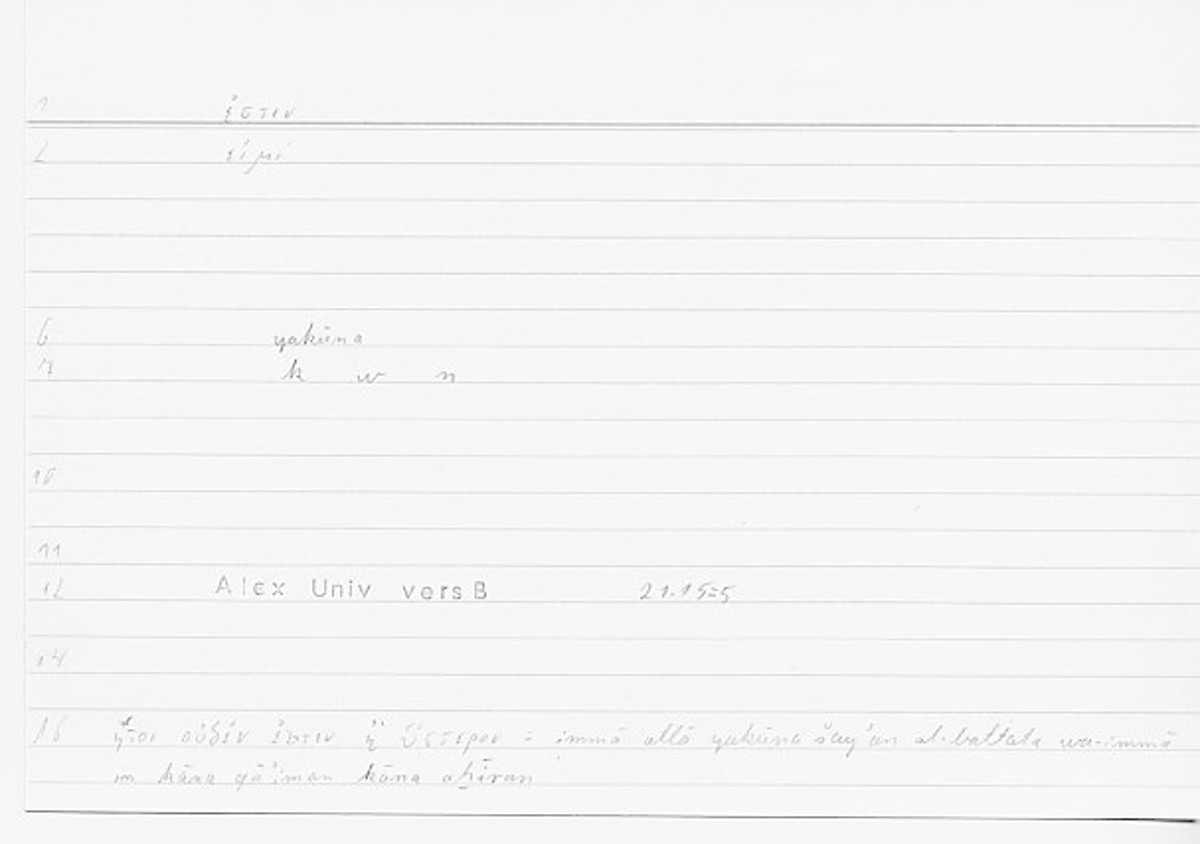 1 ἐστιν
2 εἰμί
6 yakūna
7 k w n
10
11
12 Alex Univ vers B 21.15=5
14
16 ἤτοι οὐδέν ἐστιν ἢ ὕστερον : immā allā yakūna šay'an al-battata wa-immā
in kāna qā'iman kāna aḫīran